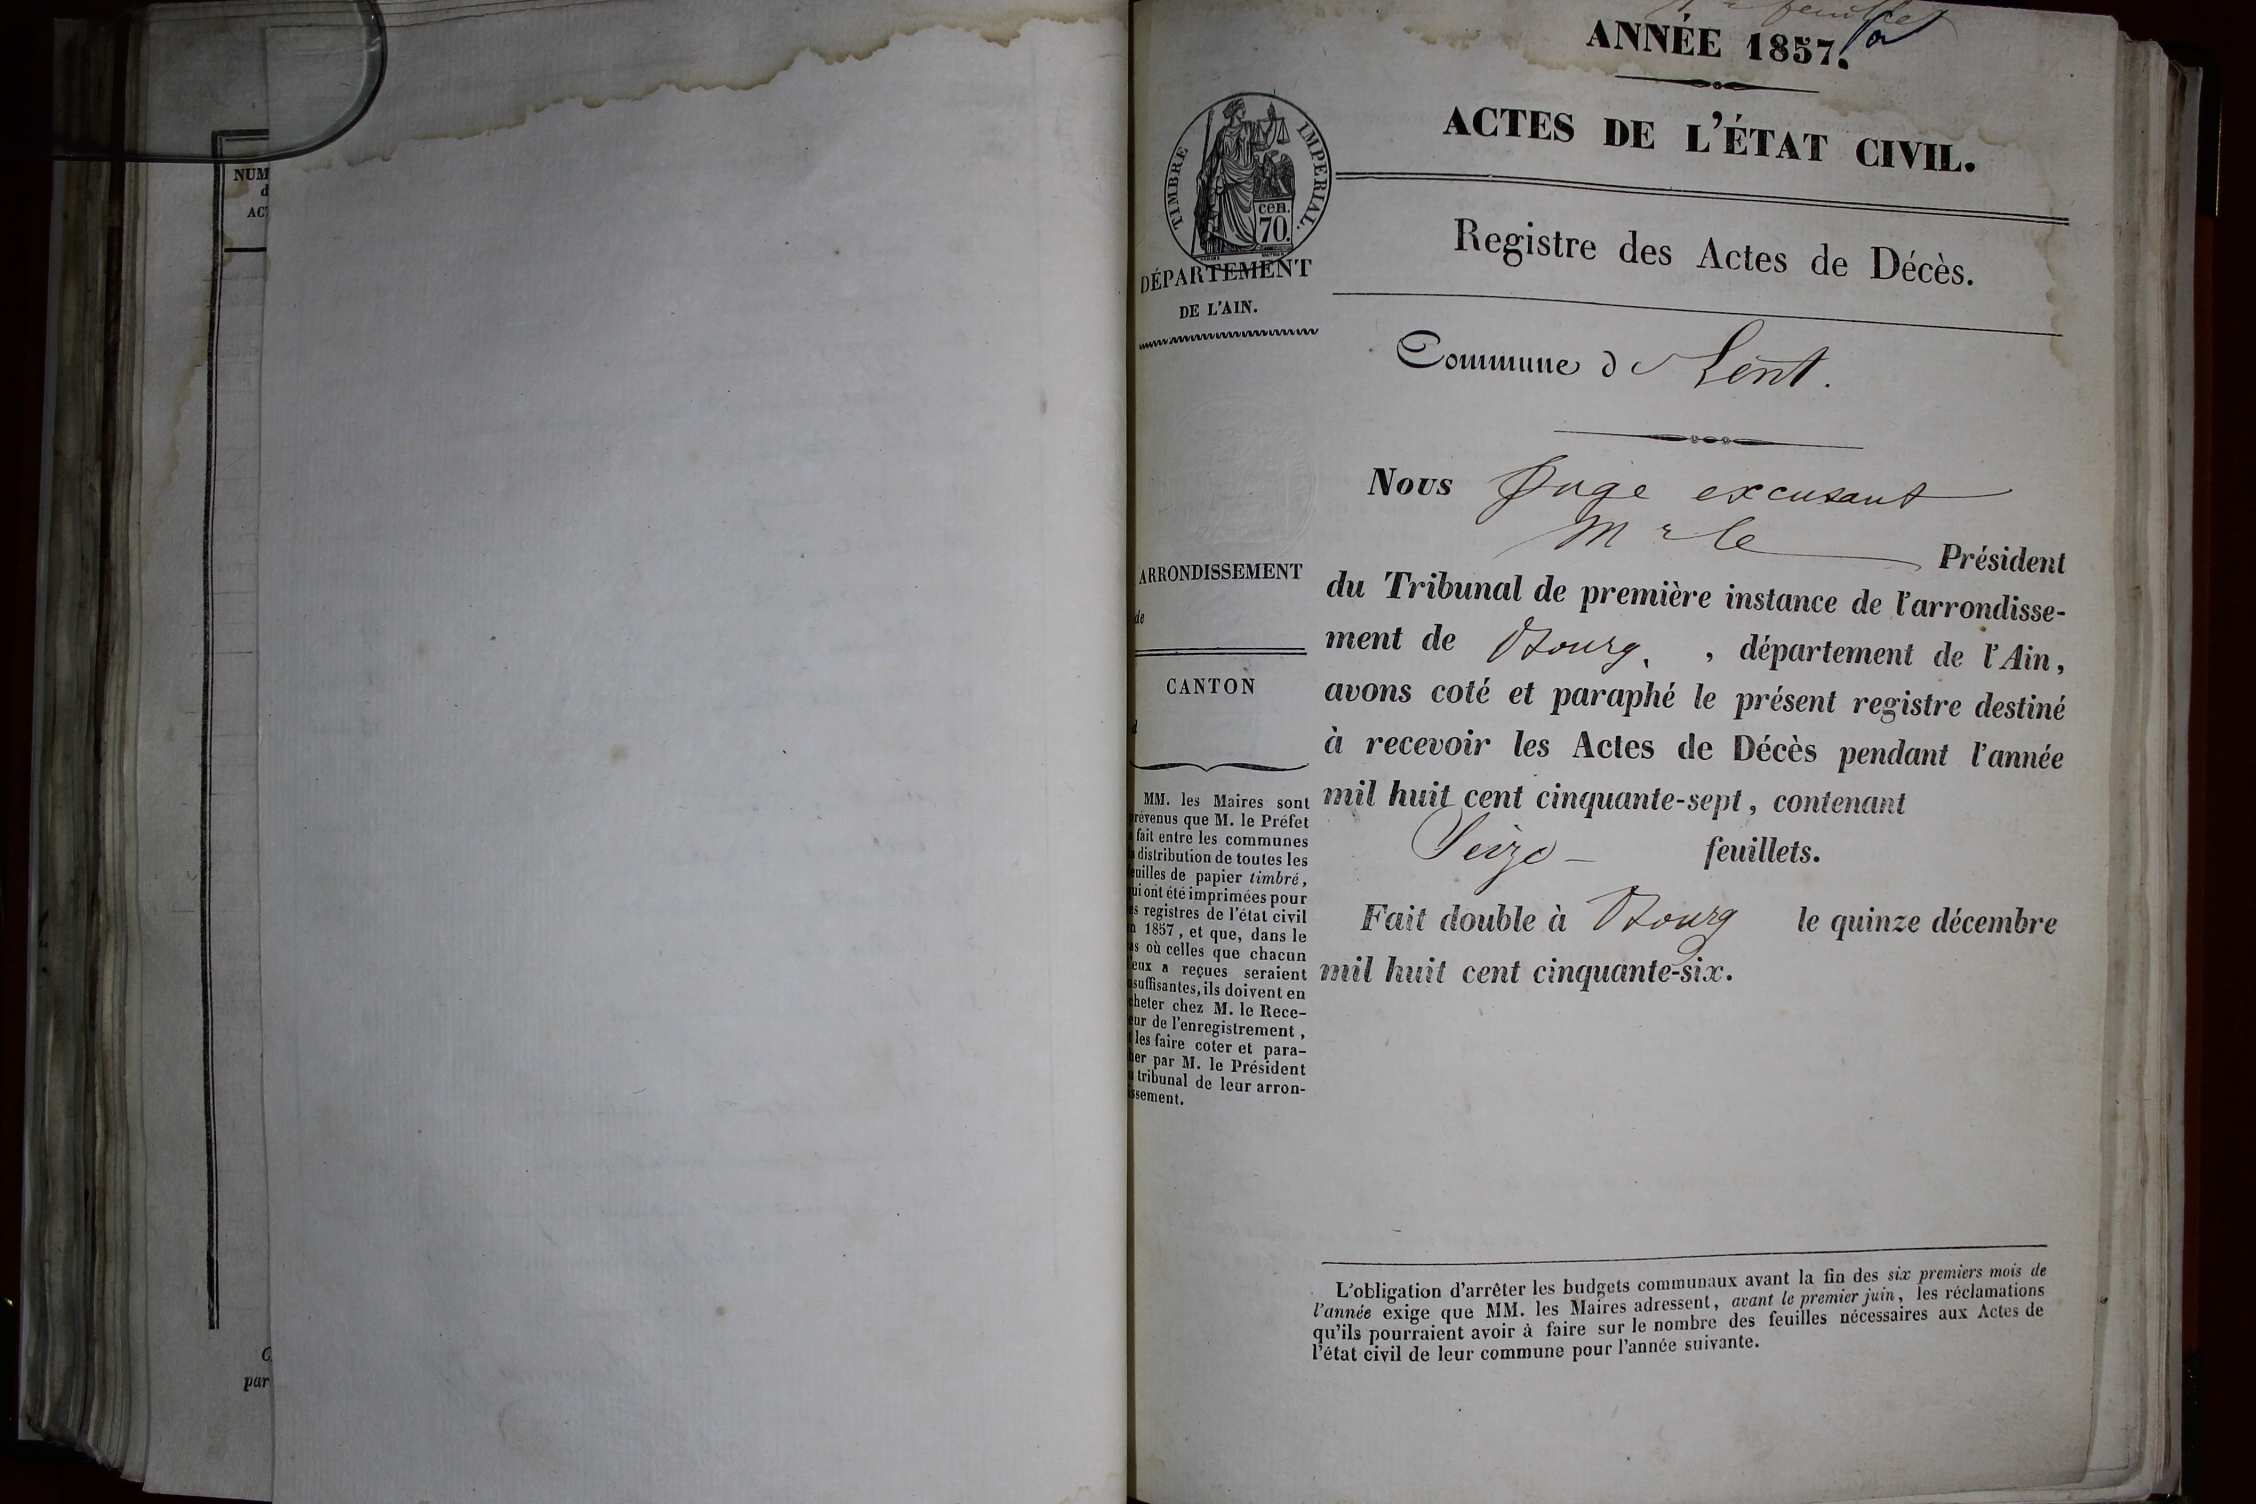 NUM
d
AC
C
par
1er feuillet
ANNÉE 1857.
ACTES DE L'ÉTAT CIVIL.
TIMBRE IMPERIAL.
cen.
70.
DÉPARTEMENT
DE L'AIN.
Registre des Actes de Décès.
Commune de Lent.
Nous Juge excusant
Mr le Président
du Tribunal de première instance de l'arrondisse-
ment de Bourg. , département de l'Ain,
avons coté et paraphé le présent registre destiné
à recevoir les Actes de Décès pendant l'année
mil huit cent cinquante-sept, contenant
Seize feuillets.
Fait double à Bourg le quinze décembre
mil huit cent cinquante-six.
ARRONDISSEMENT
de
CANTON
d
MM. les Maires sont
révenus que M. le Préfet
fait entre les communes
distribution de toutes les
euilles de papier timbré,
ui ont été imprimées pour
s registres de l'état civil
n 1857, et que, dans le
as où celles que chacun
eux a reçues seraient
suffisantes, ils doivent en
heter chez M. le Rece-
eur de l'enregistrement,
les faire coter et para-
her par M. le Président
tribunal de leur arron-
ssement.
L'obligation d'arrêter les budgets communaux avant la fin des six premiers mois de
l'année exige que MM. les Maires adressent, avant le premier juin, les réclamations
qu'ils pourraient avoir à faire sur le nombre des feuilles nécessaires aux Actes de
l'état civil de leur commune pour l'année suivante.